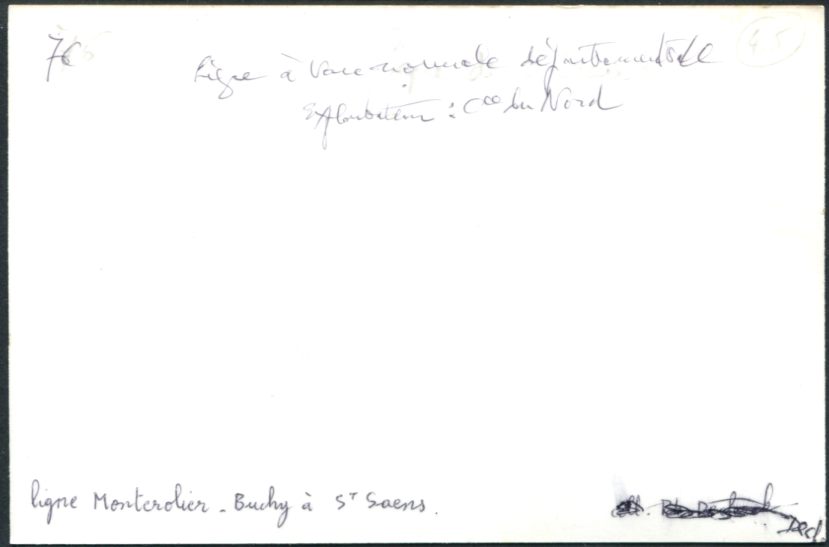 76
45
Ligne à voie normale départementale
Exploitation : Cie du Nord
ligne Monterolier - Buchy à St Saens.